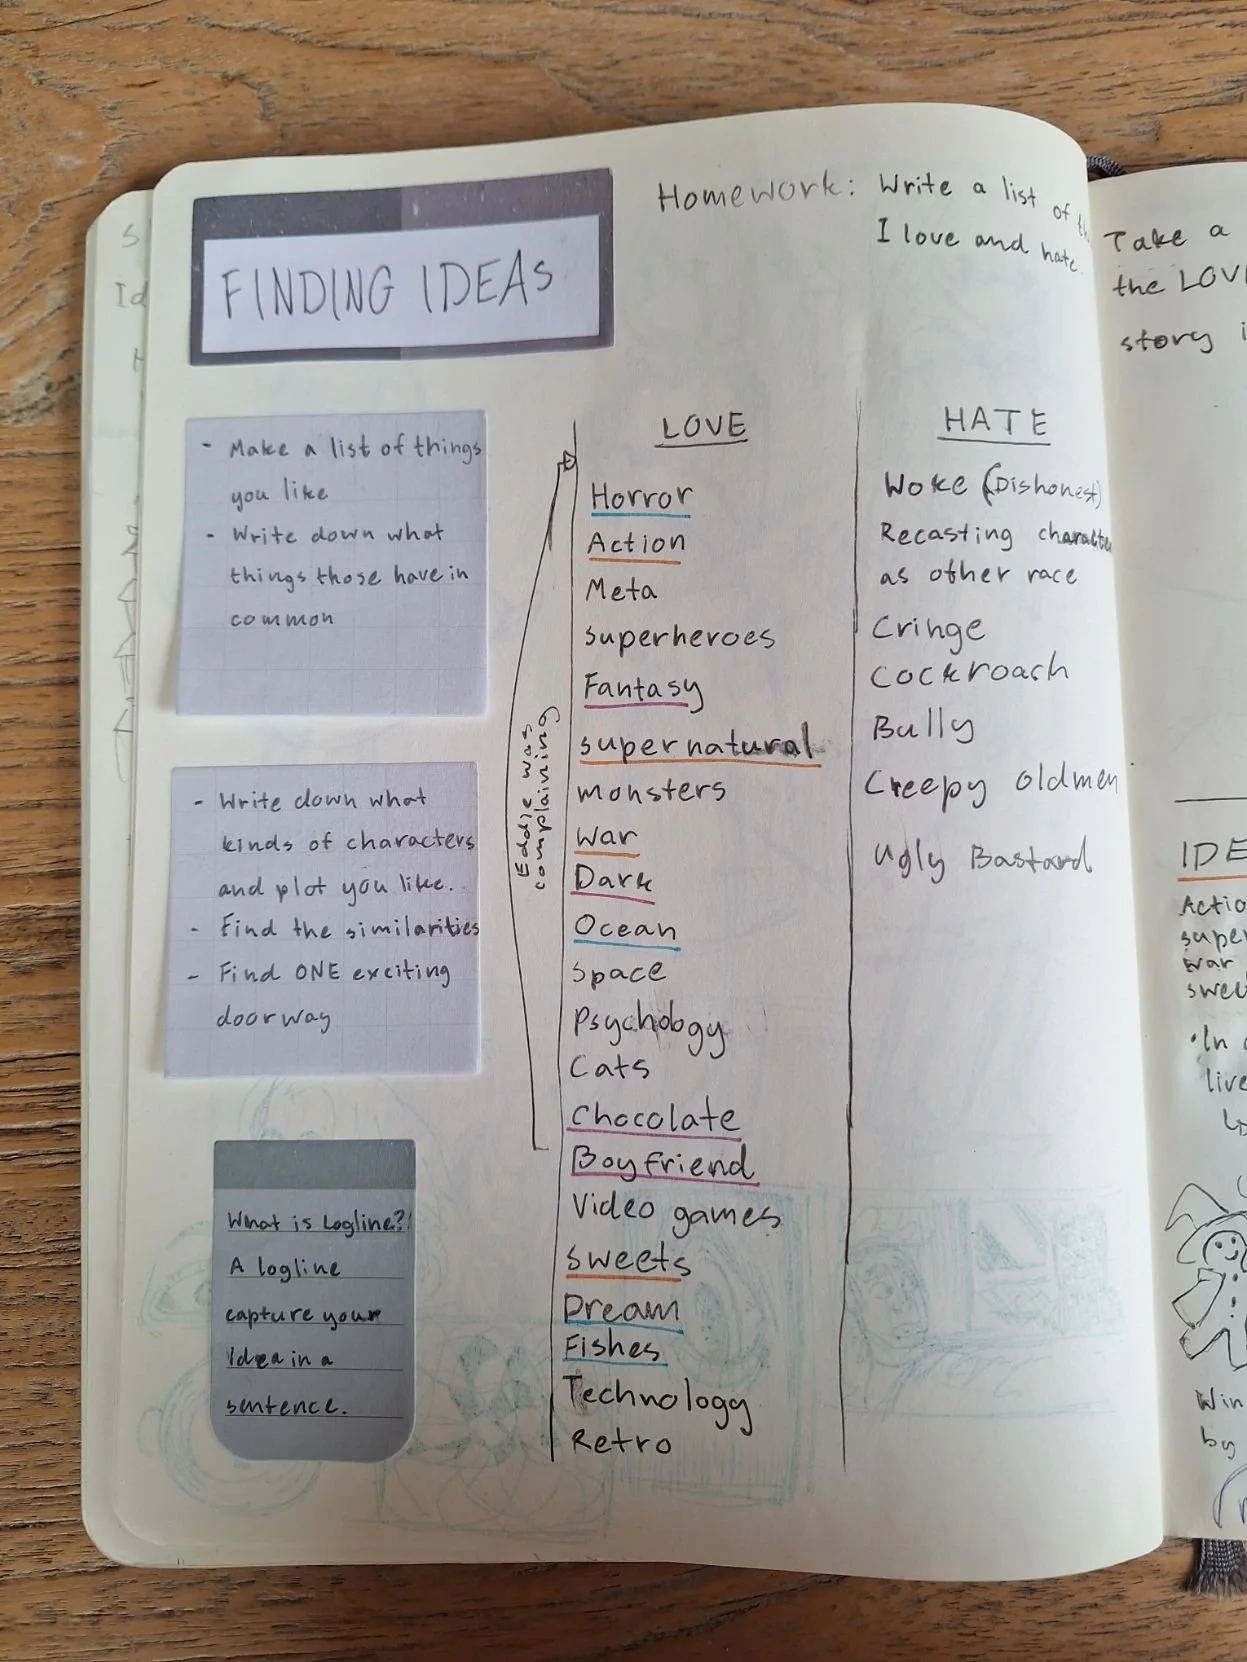 FINDING IDEAS
Homework: Write a list of
I love and hate
- Make a list of things
you like
- Write down what
things those have in
common
- Write down what
kinds of characters
and plot you like.
- Find the similarities
- Find ONE exciting
doorway
What is Logline?!
A logline
capture your
idea in a
sentence.
Eddie was
complaining
LOVE
Horror
Action
Meta
superheroes
Fantasy
supernatural
monsters
War
Dark
Ocean
space
Psychology
Cats
Chocolate
Boyfriend
Video games
sweets
Dream
Fishes
Technology
Retro
HATE
Woke (Dishonest)
Recasting
as other race
Cringe
Cockroach
Bully
Creepy oldmen
Ugly Bastard
Take a
the
story
war